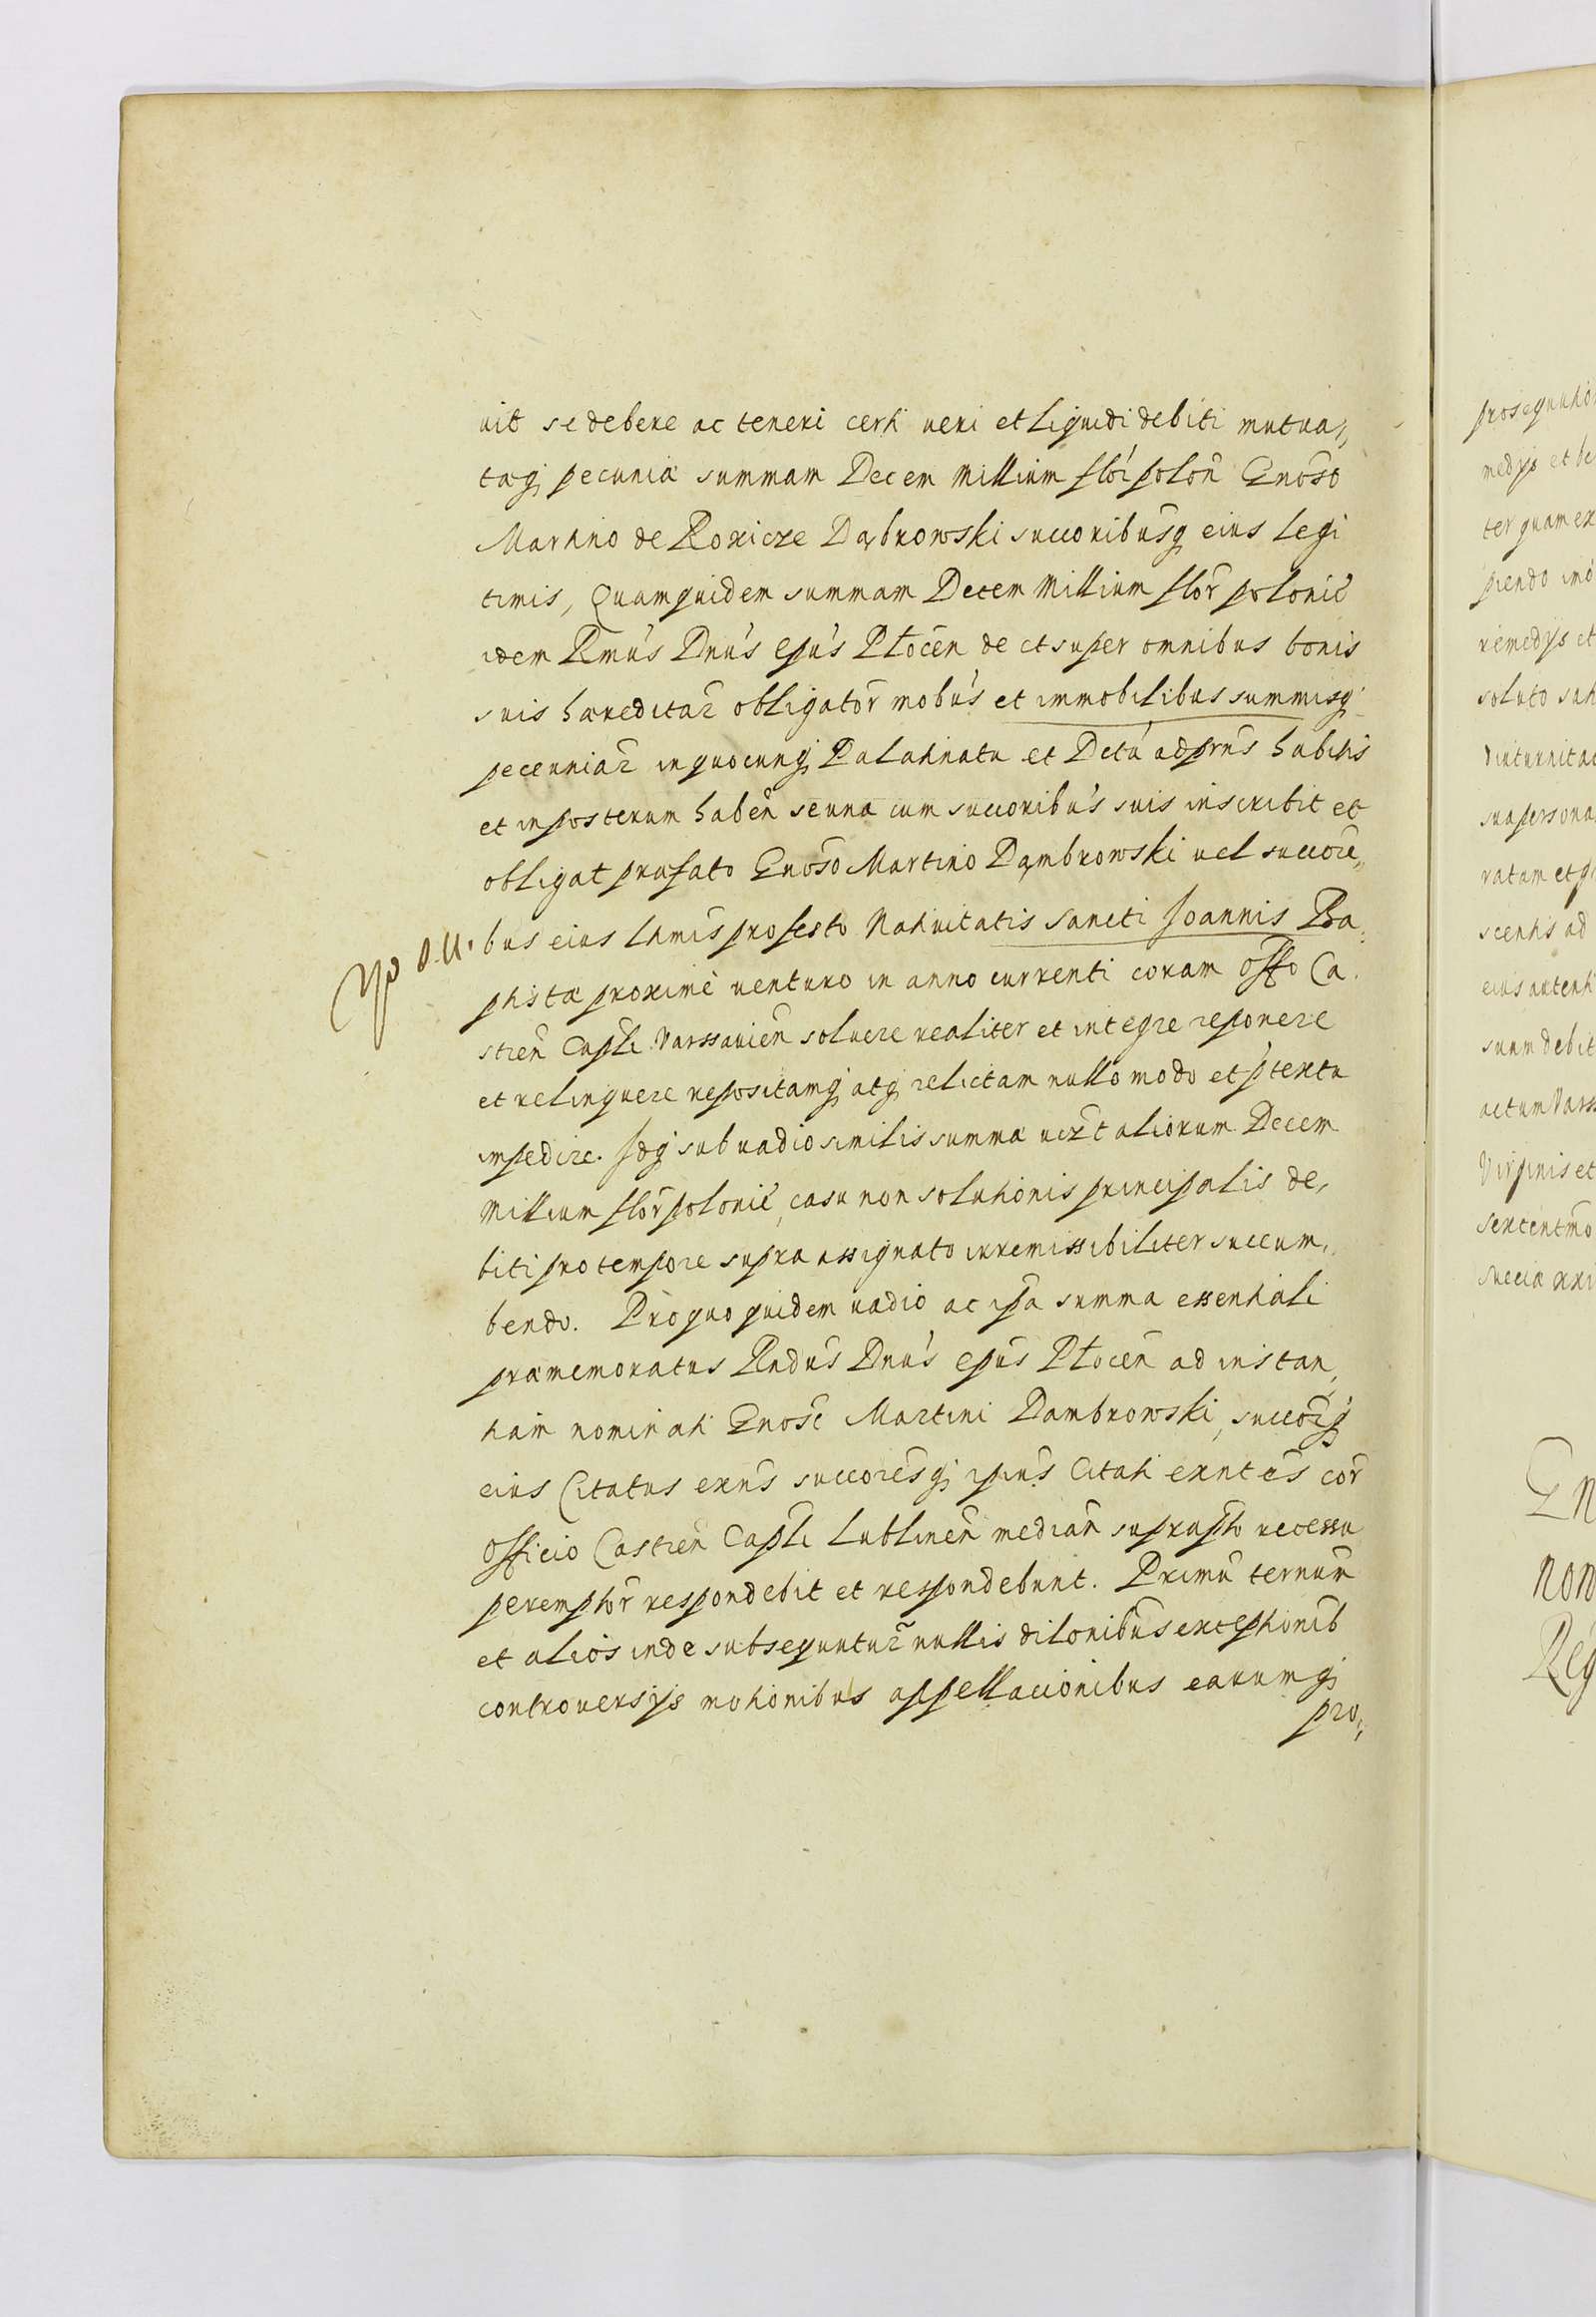 uit se debere ac teneri certi ueri et liquidi debiti mutua,
tæq pecuniæ summam Decem Millium flor polon Gnoso
Martino de Roxicze Dąbrowski succoribusq eius legi
timis, Quamquidem summam Decem Millium flor polonic
idem Rmus Dnus epus Płocen de et super omnibus bonis
suis hæreditar obligator mobus et immobilibus summisq
pecuniar in quocunq Palatinatu et Dctu ad prns habitis
et in posterum haben se una cum succoribus suis inscribit et
obligat præfato Gnoso Martino Dąmbrowski uel succori,
bus eius ltmis pro festo Natiuitatis Sancti Joannis Ba,
ptistæ proximè uenturo in anno currenti coram Offo Ca
stren Capli Varssauien soluere realiter et integre reponere
et relinquere repositamq atq relictam nullo modo et ptextu
impedire. Idq sub uadio similis summæ uizt aliorum Decem
Millium flor polonic, casu non solutionis principalis de,
biti pro tempore supra assignato irremissibiliter succum,
bendo. Pro quo quidem uadio ac ipsa summa essentiali
præmemoratus Rndus Dnus epus Płocen ad instan,
tiam nominati Gnosi Martini Dambrowski, succorq
eius Citatus exns succoresq ipius Citati exntes cor
Officio Castren Capli Lublinen median suprapto recessu
peremptor respondebit et respondebunt. Primu ternum
et alios inde subsequntur nullis dilonibus exceptionib
controuersijs motionibus appellacionibus earumq
pro,
prosequutio
medijs et be
ter quam ex
piendo imo
remedijs et
soluto sati
Diuturnitac
sua persona
ratam et gr
scentis ad
eius autenti
suum debit
actum Vars
Virginis et
sexcentmo
Sueciæ xxi
GN
nom
Reg